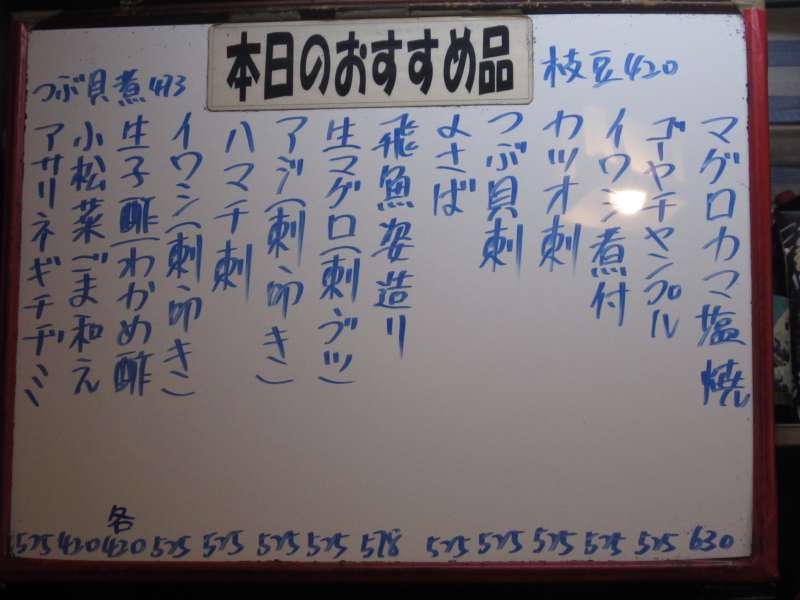 本日のおすすめ品
枝豆420
マグロカマ塩焼 630
ゴーヤチャンプル 525
イワシ煮付 525
カツオ刺 525
つぶ貝刺 525
よさば 525
飛魚姿造り 578
生マグロ(刺、ブツ) 525
アジ(刺、叩き) 525
ハマチ刺 525
イワシ(刺、叩き) 525
生子酢(わかめ酢 各420
小松菜ごま和え 420
アサリネギチヂミ 525
つぶ貝煮473